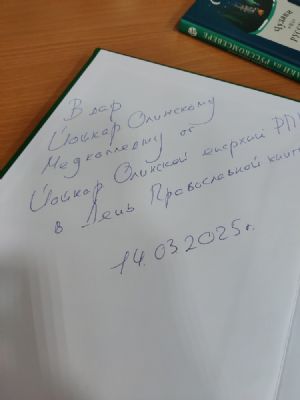 В дар
Йошкар Олинскому
Медколледжу от
Йошкар Олинской епархии РП
в День Православной книг
14.03.2025г.